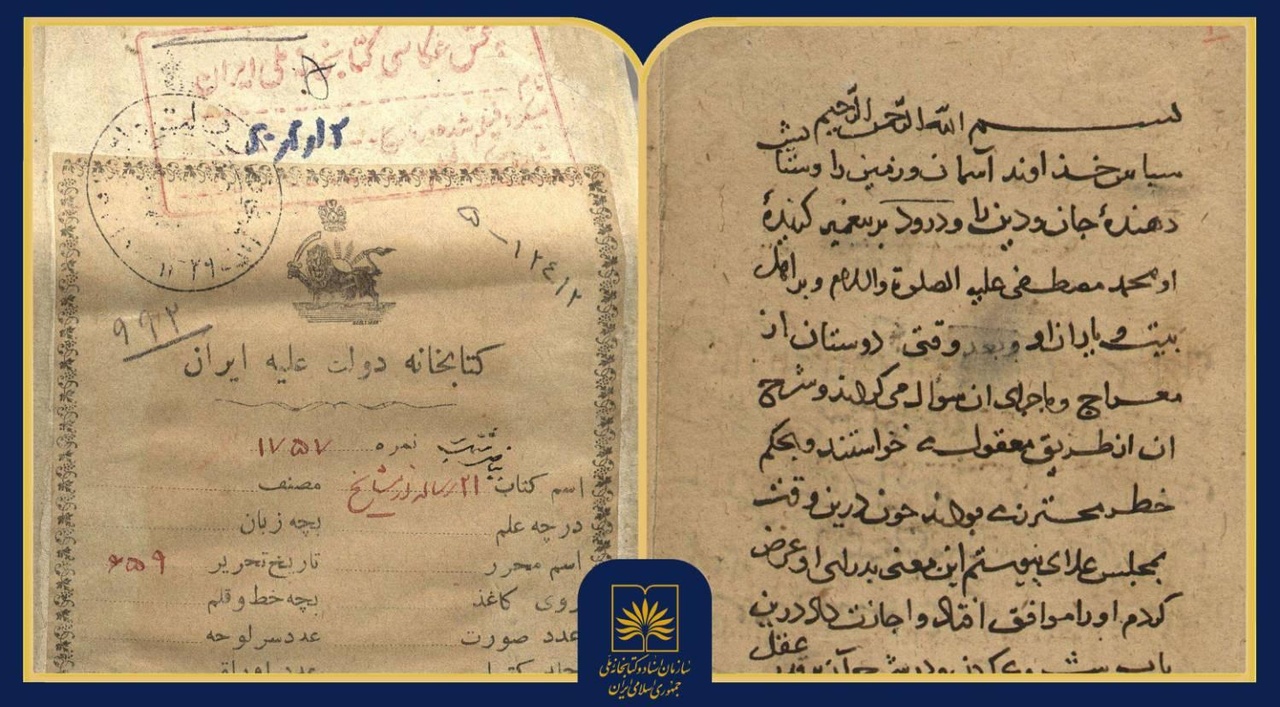 بخش عکاسی کتابخانه ملی ایران
۹۹۲
۵-۱۲۴۱۲
کتابخانه دولت علیه ایران
نمره ۱۷۵۷
اسم کتاب ۲۱ رساله از مشایخ مصنف
درچه علم بچه زبان
اسم محرر تاریخ تحریر ۶۵۹
روی کاغذ بچه خط و قلم
عدد صورت عدد سرلوحه
بسم الله الرحمن الرحیم
سباس خذاوند آسمان و زمین را وستایش
دهندهٔ جان و دین را و درود بر بیغمبر کزیدهٔ
او محمد مصطفی علیه الصلوة والسلام و بر اهل
بیت و یاران او و بعد وقتی دوستان از
معراج و ماجرای ان سؤال می کردند و شرح
ان از طریق معقول می خواستند و بحکم
خطر محترز می بودند چون درین وقت
بمجلس علای بیوستم این معنی بر رای او عرض
کردم او را موافق افتاد و اجازت داد درین
عقل
سازمان اسناد و کتابخانه ملی
جمهوری اسلامی ایران